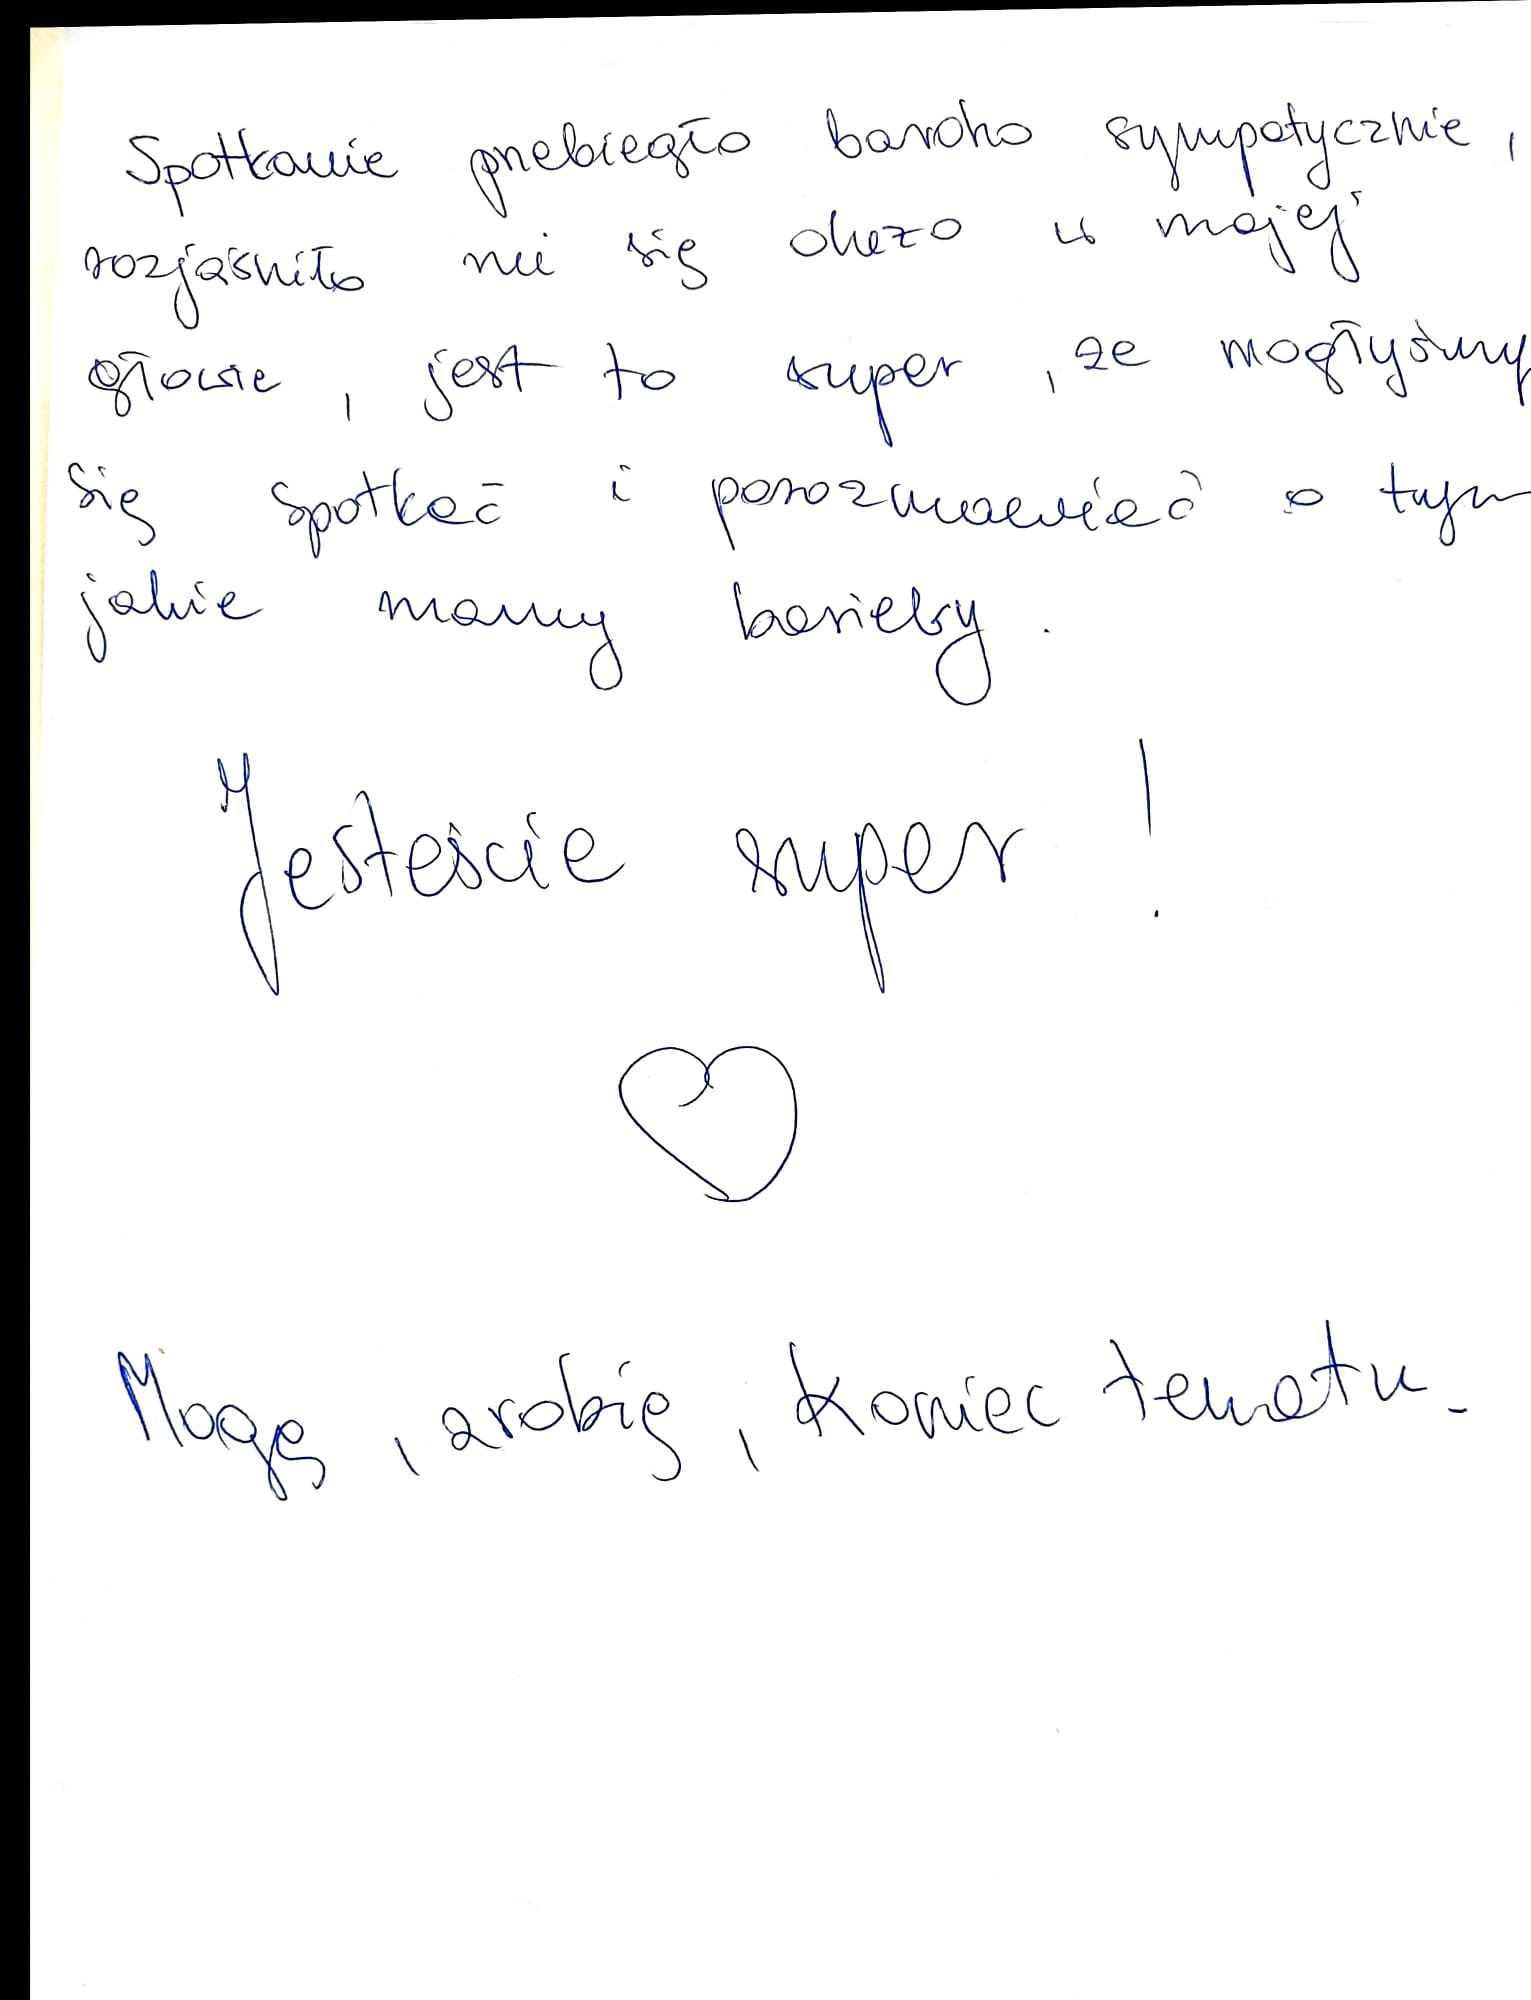 Spotkanie przebiegło bardzo sympatycznie,
rozjaśniło mi się dużo w mojej
głowie, jest to super, że mogłyśmy
się spotkać i porozmawiać o tym
jakie mamy bariery.
Jesteście super!
Mogę, zrobię, koniec tematu.